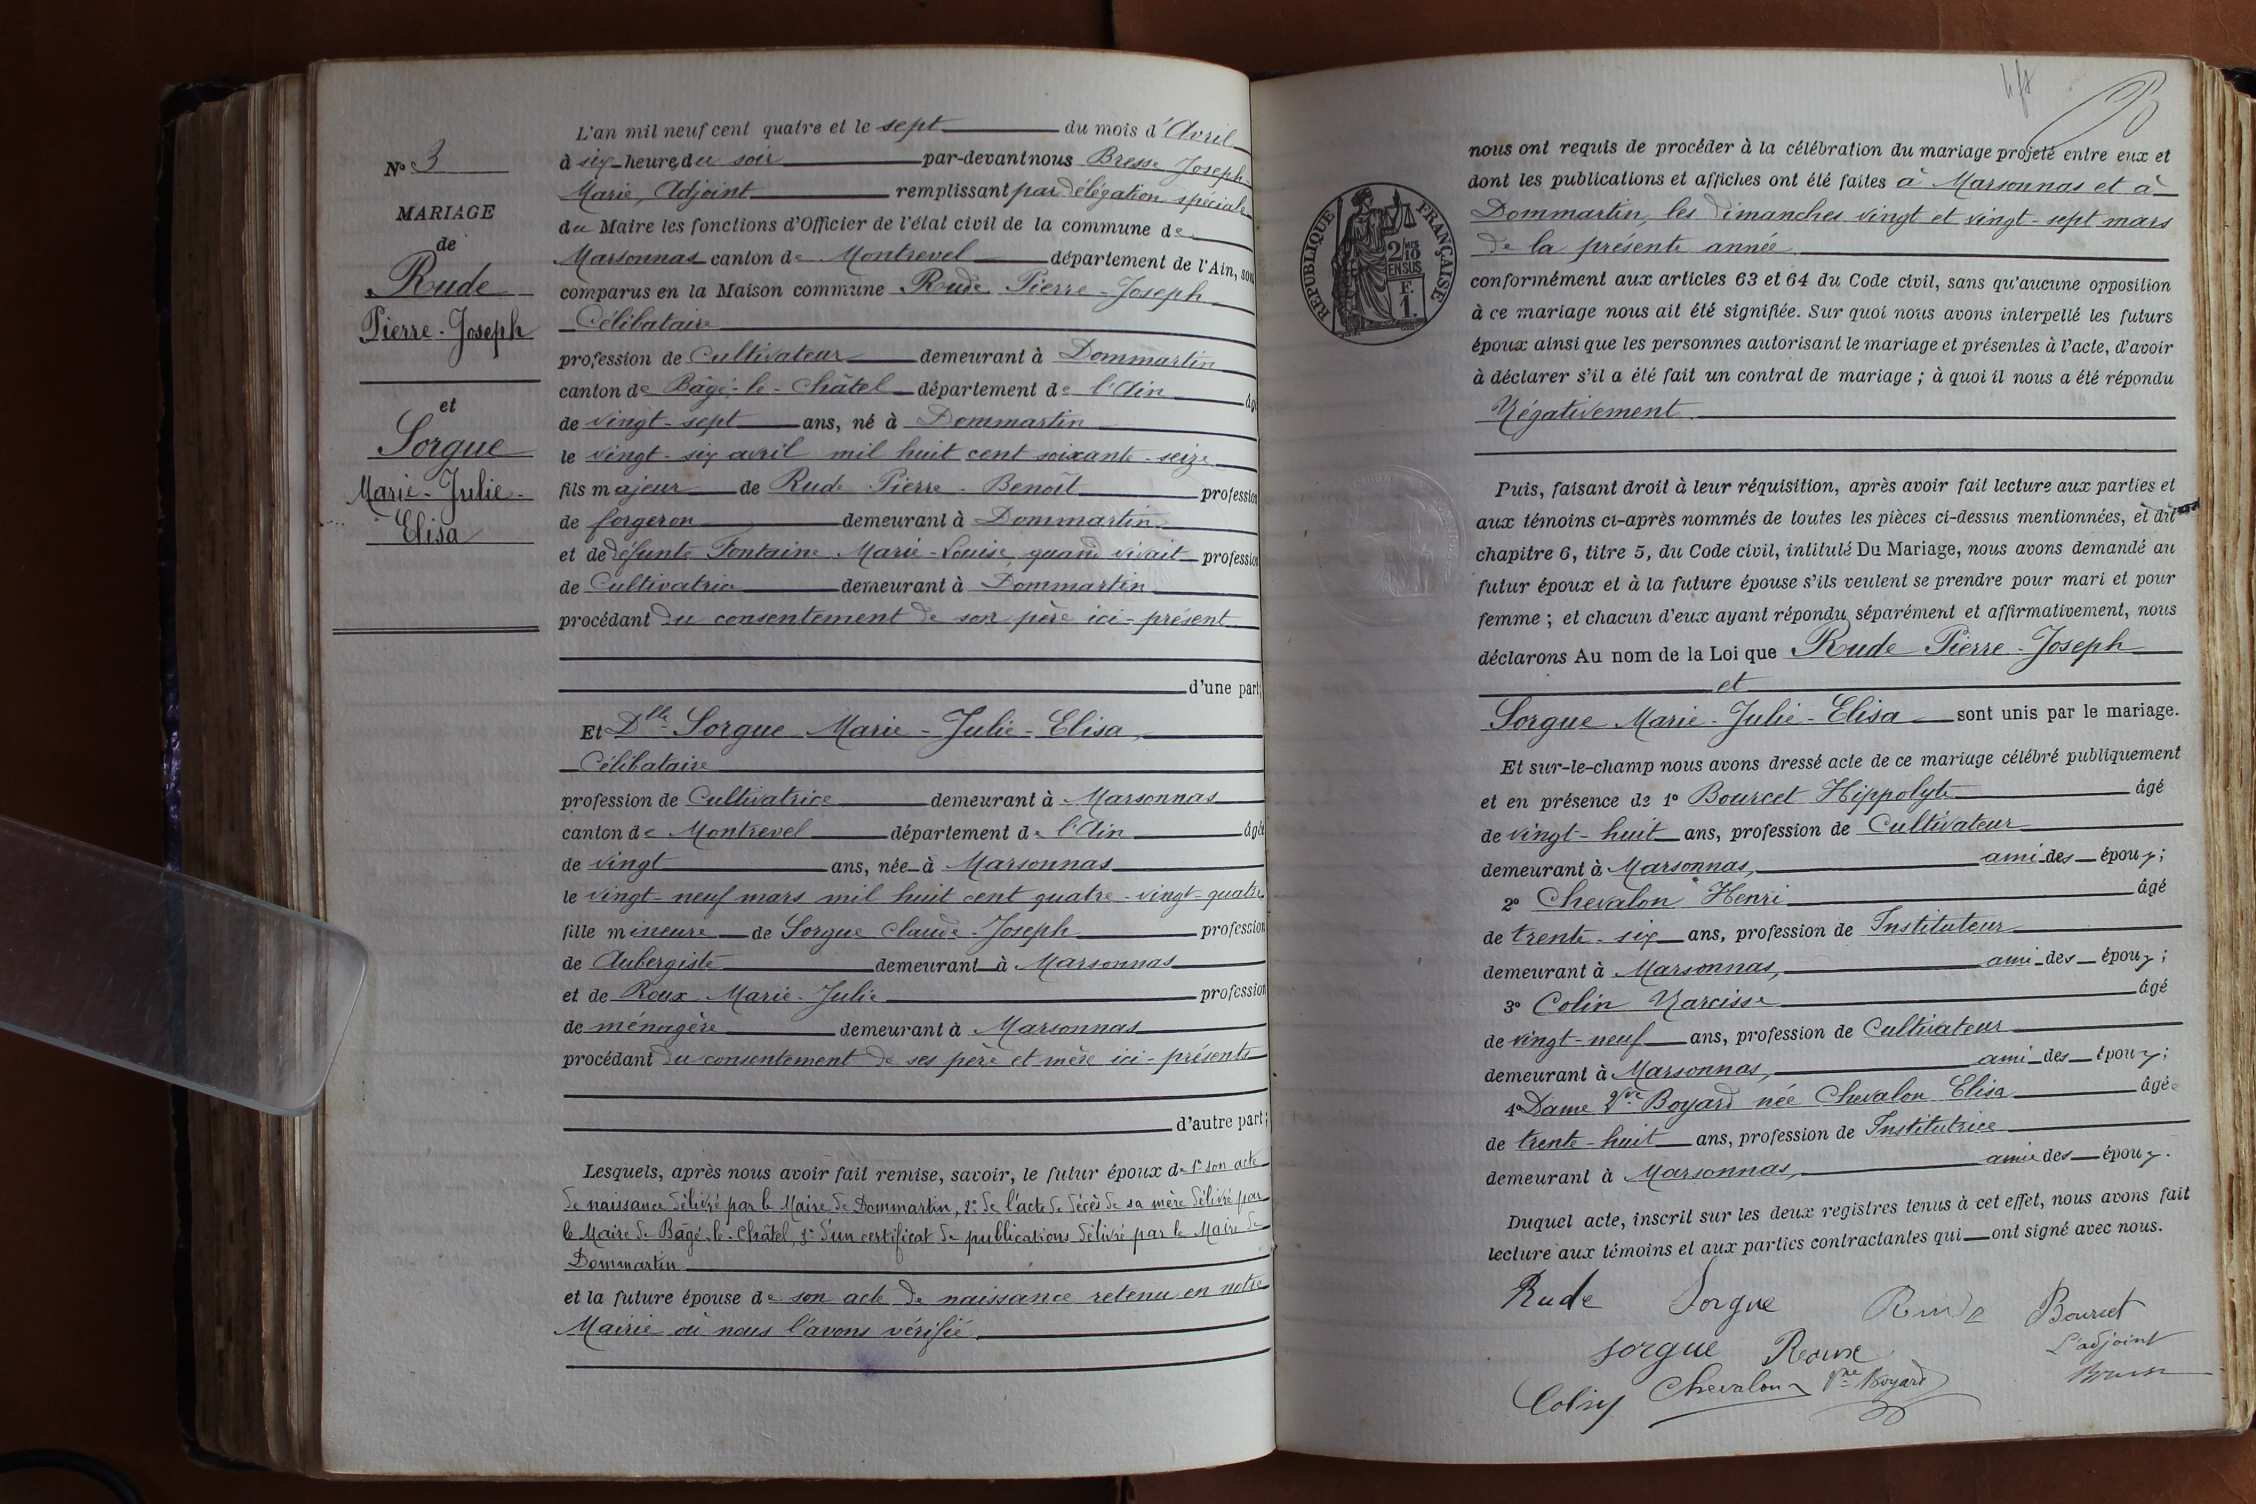 N° 3
MARIAGE
de
Rude
Pierre-Joseph
et
Sorgue
Marie-Julie-
Elisa
L'an mil neuf cent quatre et le sept du mois d'Avril
à six heures du soir par-devant nous Bresse Joseph-
Marie, Adjoint remplissant par délégation spéciale
du Maire les fonctions d'Officier de l'état civil de la commune de
Marsonnas canton de Montrevel département de l'Ain, sont
comparus en la Maison commune Rude Pierre-Joseph
Célibataire
profession de Cultivateur demeurant à Dommartin
canton de Bâgé-le-Châtel département de l'Ain âgé
de vingt-sept ans, né à Dommartin
le vingt-six avril mil huit cent soixante-seize
fils majeur de Rude Pierre-Benoît profession
de forgeron demeurant à Dommartin
et de défunte Fontaine Marie-Louise, quand vivait profession
de Cultivatrice demeurant à Dommartin
procédant du consentement de son père ici-présent
d'une part;
Et Dlle Sorgue Marie-Julie-Elisa,
Célibataire
profession de Cultivatrice demeurant à Marsonnas
canton de Montrevel département de l'Ain âgée
de vingt ans, née à Marsonnas
le vingt-neuf mars mil huit cent quatre-vingt-quatre
fille mineure de Sorgue Claude-Joseph profession
de Aubergiste demeurant à Marsonnas
et de Roux Marie-Julie profession
de ménagère demeurant à Marsonnas
procédant du consentement de ses père et mère ici-présents
d'autre part;
Lesquels, après nous avoir fait remise, savoir, le futur époux de 1° son acte
de naissance délivré par le Maire de Dommartin, 2° de l'acte de décès de sa mère délivré par
le Maire de Bâgé-le-Châtel, 3° d'un certificat de publications délivré par le Maire de
Dommartin
et la future épouse de son acte de naissance retenu en notre
Mairie où nous l'avons vérifié
nous ont requis de procéder à la célébration du mariage projeté entre eux et
dont les publications et affiches ont été faites à Marsonnas et à
Dommartin, les dimanches vingt et vingt-sept mars
de la présente année
conformément aux articles 63 et 64 du Code civil, sans qu'aucune opposition
à ce mariage nous ait été signifiée. Sur quoi nous avons interpellé les futurs
époux ainsi que les personnes autorisant le mariage et présentes à l'acte, d'avoir
à déclarer s'il a été fait un contrat de mariage ; à quoi il nous a été répondu
Négativement.
RÉPUBLIQUE FRANÇAISE
2/10 EN SUS
F. 1.
Puis, faisant droit à leur réquisition, après avoir fait lecture aux parties et
aux témoins ci-après nommés de toutes les pièces ci-dessus mentionnées, et du
chapitre 6, titre 5, du Code civil, intitulé Du Mariage, nous avons demandé au
futur époux et à la future épouse s'ils veulent se prendre pour mari et pour
femme ; et chacun d'eux ayant répondu séparément et affirmativement, nous
déclarons Au nom de la Loi que Rude Pierre-Joseph
et
Sorgue Marie-Julie-Elisa sont unis par le mariage.
Et sur-le-champ nous avons dressé acte de ce mariage célébré publiquement
et en présence de 1° Bourcet Hippolyte âgé
de vingt-huit ans, profession de Cultivateur
demeurant à Marsonnas, ami des époux;
2° Chevalon Henri âgé
de trente-six ans, profession de Instituteur
demeurant à Marsonnas, ami des époux;
3° Colin Narcisse âgé
de vingt-neuf ans, profession de Cultivateur
demeurant à Marsonnas, ami des époux;
4° Dame Vve Boyard née Chevalon Elisa âgée
de trente-huit ans, profession de Institutrice
demeurant à Marsonnas, amie des époux.
Duquel acte, inscrit sur les deux registres tenus à cet effet, nous avons fait
lecture aux témoins et aux parties contractantes qui ont signé avec nous.
Rude Sorgue Rude Bourcet
Sorgue Roux L'adjoint
Colin Chevalon Vve Boyard Bresse